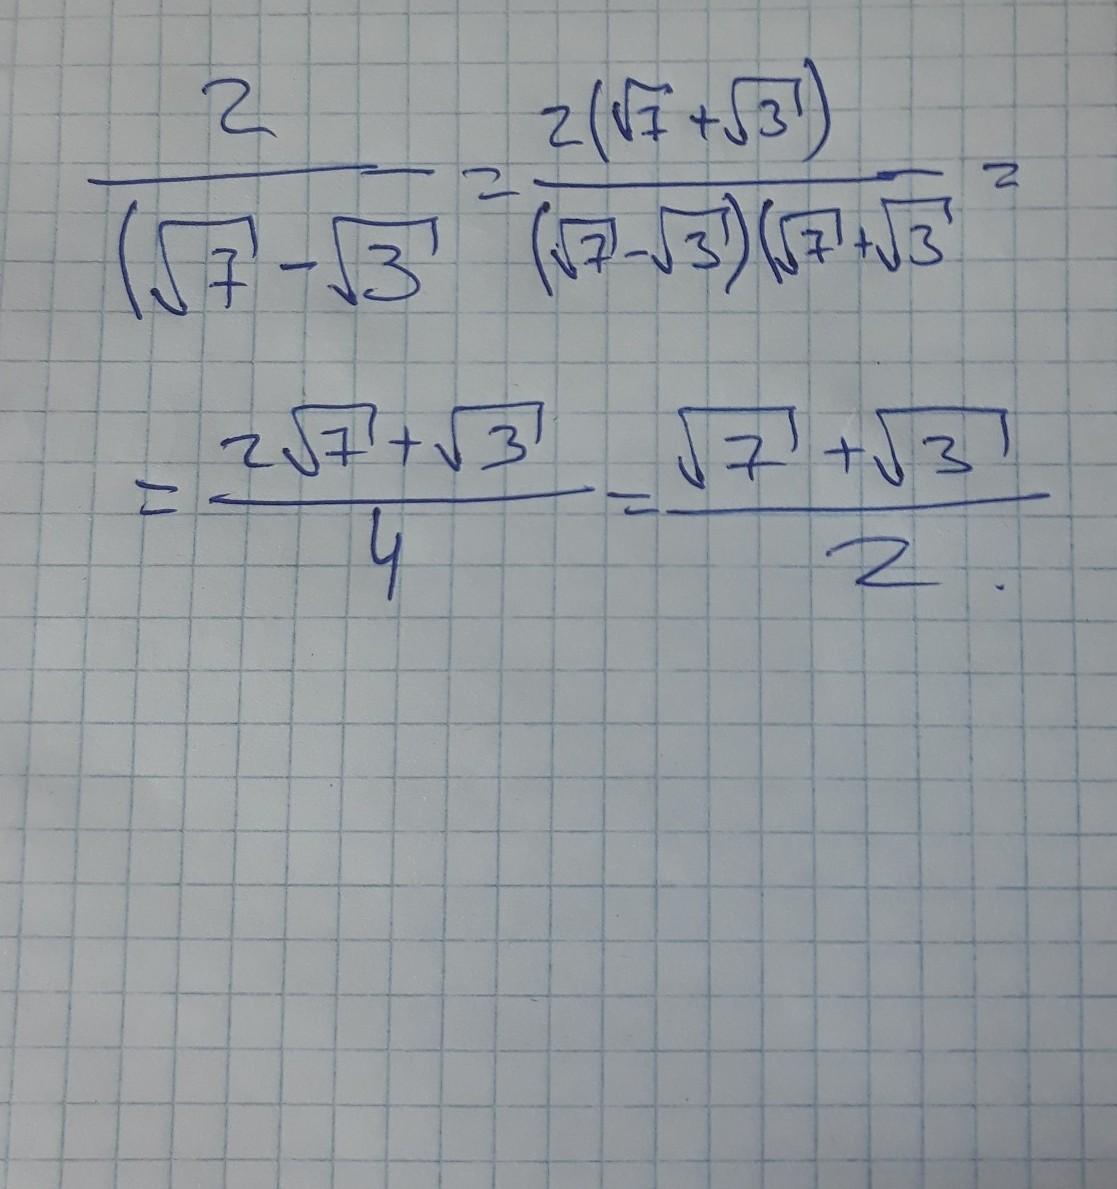 2 / (√7 - √3 = 2(√7 + √3) / (√7 - √3)(√7 + √3 =
= 2√7 + √3 / 4 = √7 + √3 / 2 .